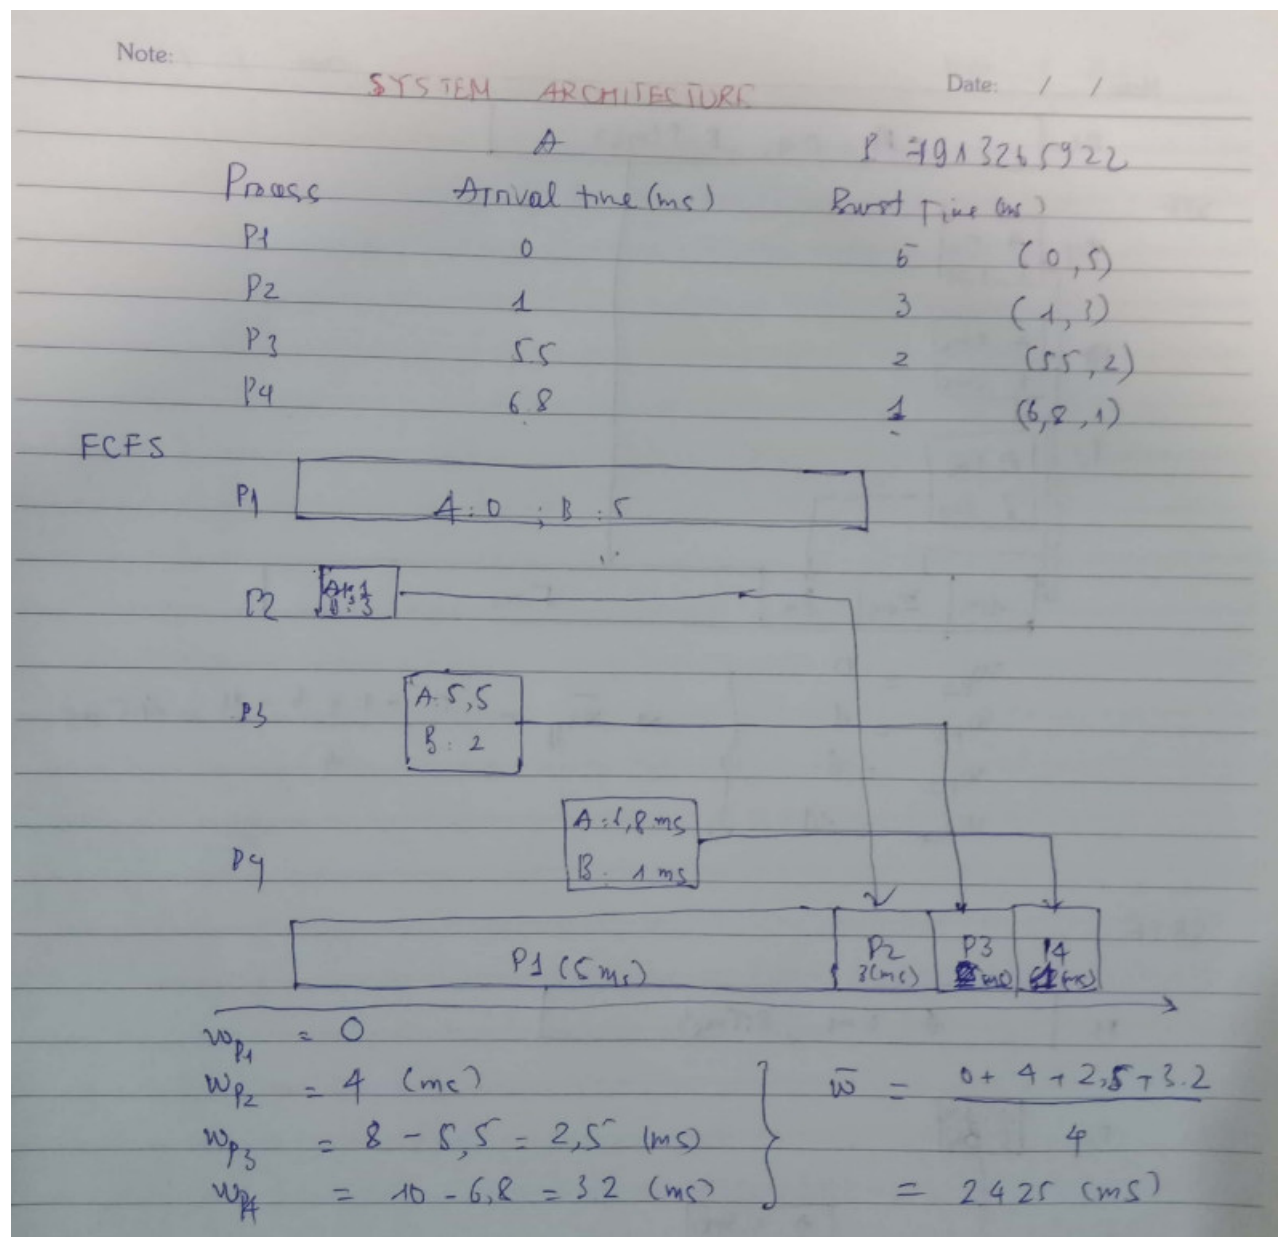 Note:
SYSTEM ARCHITECTURE Date: / /
A
Process Arrival time (ms) Burst Time (ms)
P1 0 5 (0,5)
P2 1 3 (1,3)
P3 5.5 2 (5.5,2)
P4 6.8 1 (6,8,1)
FCFS
P1 A:0 ; B:5
P2 A:1
B:3
P3 A:5,5
B:2
P4 A:6,8 ms
B: 1 ms
P1 (5ms) P2 P3 P4
3(ms)
wP1 = 0
wP2 = 4 (ms)
wP3 = 8 - 5,5 = 2,5 (ms)
wP4 = 10 - 6,8 = 3.2 (ms)
w̄ = 0+ 4 + 2,5 + 3.2
4
= 2.425 (ms)